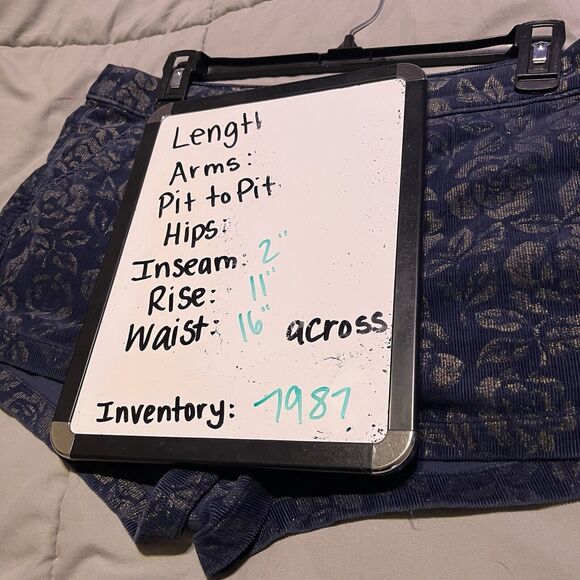 Lengtl
Arms:
Pit to Pit
Hips:
Inseam: 2"
Rise: 11"
Waist: 16" across
Inventory: 7987